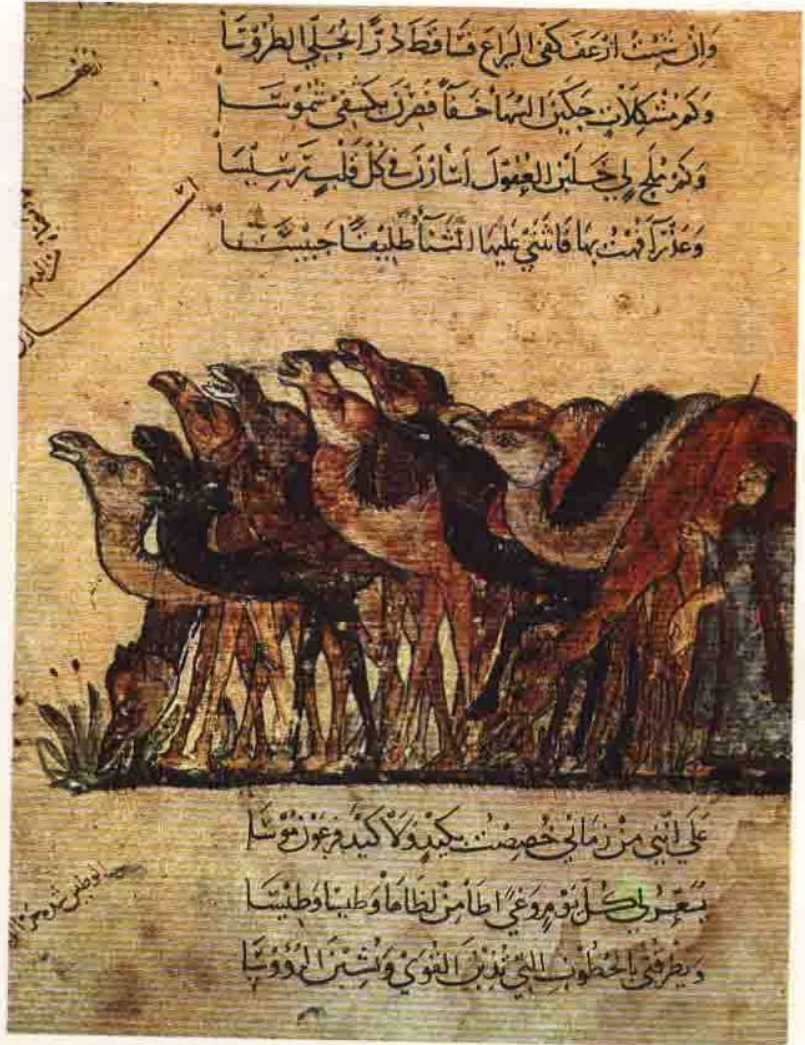 وَإِنْ شِئْتُ أَرْعَفَ كَفِّي الْيَرَاعَ فَسَاقَطَ دُرًّا يُحَلِّي الطُّرُوسَا
وَكَمْ مُشْكِلَاتٍ حَكَيْنَ السُّهَا خَفَاءً فَصِرْنَ بِكَشْفِي شُمُوسَا
وَكَمْ مُلَحٍ لِي خَلَبْنَ الْعُقُولَ أَسْأَرْنَ فِي كُلِّ قَلْبٍ رَسِيسَا
وَعَذْرَاءَ فُهْتُ بِهَا فَانْثَنَى عَلَيْهَا الثَّنَاءُ طَلِيقًا حَبِيسَا
عَلَى أَنَّنِي مِنْ زَمَانِي خُصِصْتُ بِكَيْدٍ وَلَا كَيْدَ فِرْعَوْنَ مُوسَى
يُسَعِّرُ لِي كُلَّ يَوْمٍ وَغًى أَطَأُ مِنْ لَظَاهَا وَطِيسًا وَطِيسَا
وَيَطْرُقُنِي بِالْخُطُوبِ الَّتِي يُذِبْنَ الْقُوَى وَيُشِبْنَ الرُّؤُوسَا